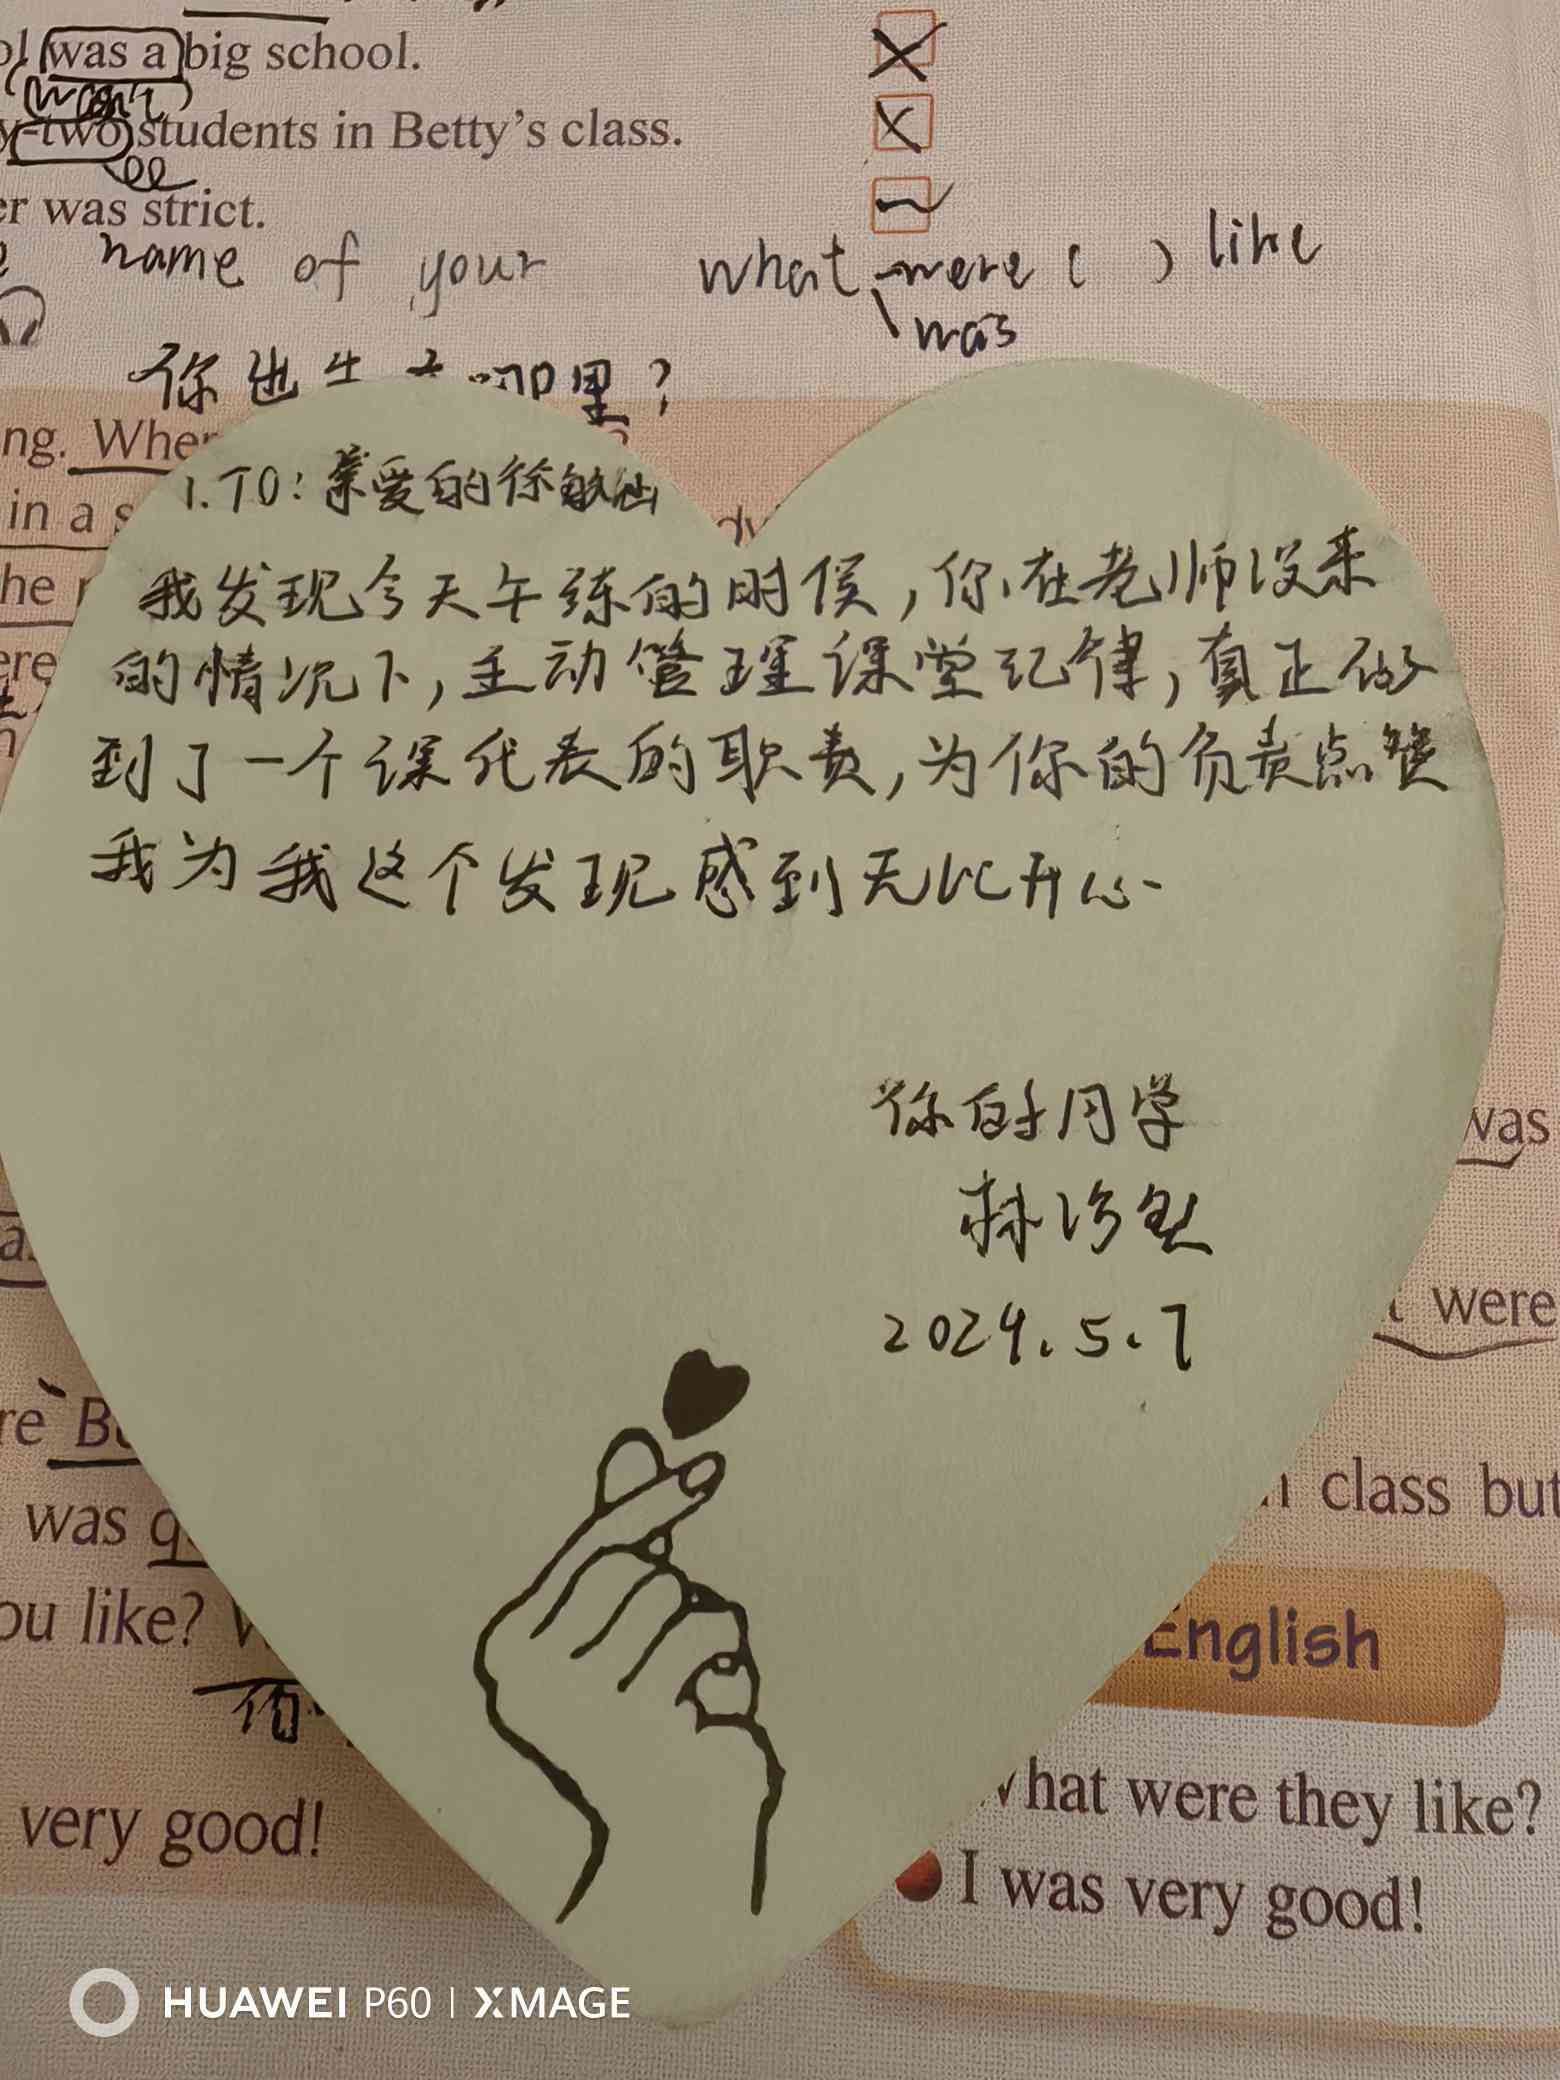 was a big school.
(won't)
y-two students in Betty's class.
er was strict.
name of your what were ( ) like
was
你出生 哪里?
ng. Wher
in a s
he
ere
1.TO:亲爱的徐
我发现今天午练的时侯,你在老师没来
的情况下,主动管理课堂纪律,真正做
到了一个课代表的职责,为你的负责点赞
我为我这个发现感到无比开心
你的同学
林
2024.5.7
was
were
re B
was q
class but
ou like? W
English
very good!
What were they like?
I was very good!
HUAWEI P60 | XMAGE